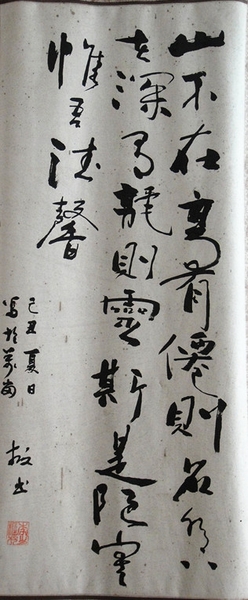 山不在高有僊則名水不
在深有龍則靈斯是陋室
惟吾德馨
己丑夏日
写於
书